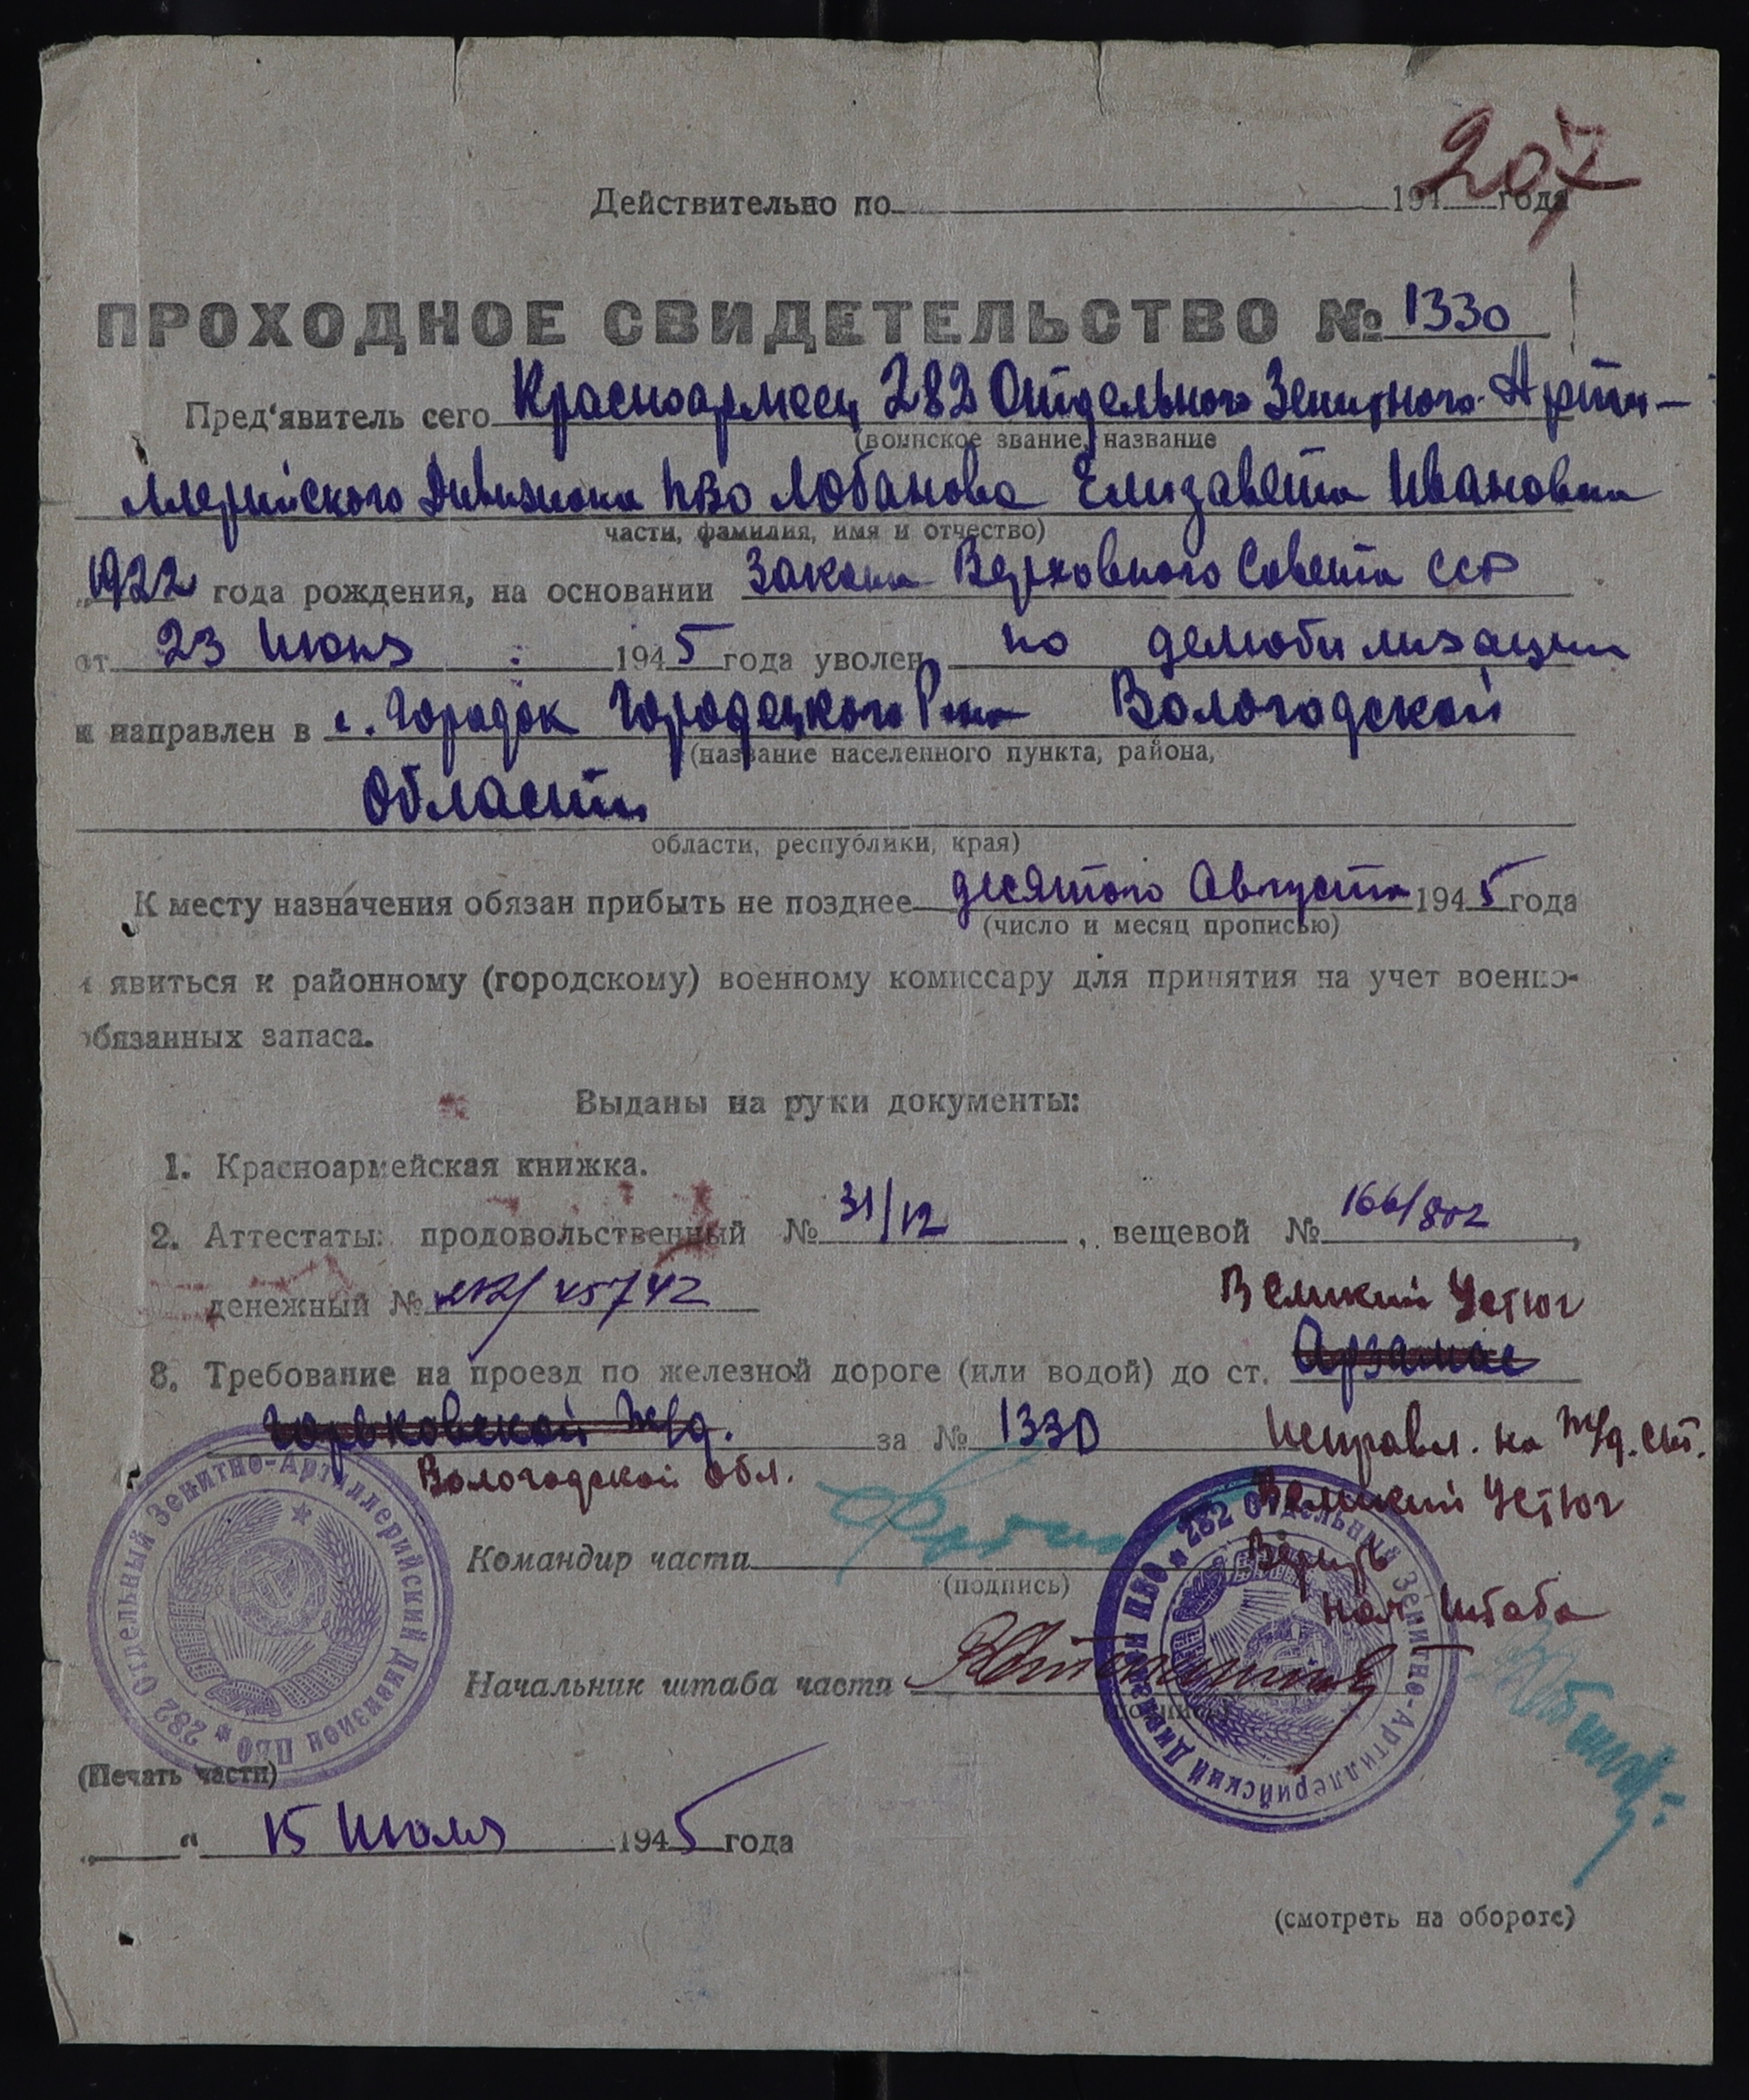 207
Действительно по 194 года
ПРОХОДНОЕ СВИДЕТЕЛЬСТВО № 1330
Пред'явитель сего Красноармеец 282 Отдельного Зенитного Арти-
(воинское звание, название
ллерийского Дивизиона ПВО Лобанова Елизавета Ивановна
части, фамилия, имя и отчество)
„1922 года рождения, на основании Закона Верховного Совета ССР
от 23 Июня 1945 года уволен по демобилизации
и направлен в с. Городок Городецкого Р-на Вологодской
(название населенного пункта, района,
Области
области, республики, края)
К месту назначения обязан прибыть не позднее десятого Августа 1945 года
(число и месяц прописью)
и явиться к районному (городскому) военному комиссару для принятия на учет военно-
обязанных запаса.
Выданы на руки документы:
1. Красноармейская книжка.
2. Аттестаты: продовольственный № 31/12, вещевой № 166/802,
денежный № 212/45742
Великий Устюг
3. Требование на проезд по железной дороге (или водой) до ст. Арзамас
Горьковской ж/д. за № 1330 Исправл. на ж/д. ст.
Вологодской обл. Великий Устюг
Верить
Командир части
(подпись)
Нач. Штаба
Начальник штаба части
(подпись)
282 Отдельный Зенитно-Артиллерийский Дивизион ПВО
282 Отдельный Зенитно-Артиллерийский Дивизион ПВО
(Печать части)
„ “ 15 Июля 1945 года
(смотреть на обороте)